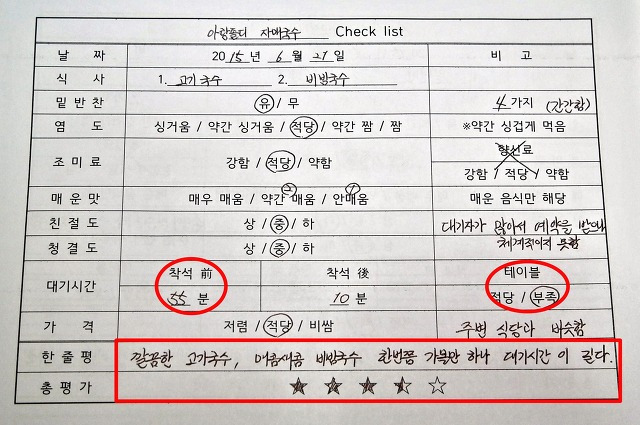 아랑졸디 자매국수 Check list
날 짜 2015년 6월 21일 비 고
식 사 1. 고기국수 2. 비빔국수
밑반찬 유 / 무 4가지 (간간함)
염 도 싱거움 / 약간 싱거움 / 적당 / 약간 짬 / 짬 ※약간 싱겁게 먹음
조미료 강함 / 적당 / 약함 향신료
강함 / 적당 / 약함
매운맛 매우 매움 / 약간 매움 / 안매움 매운 음식만 해당
② ①
친절도 상 / 중 / 하 대기자가 많아서 예약을 받으나
청결도 상 / 중 / 하 체계적이지 못함
대기시간 착석 前 착석 後 테이블
55 분 10 분 적당 / 부족
가 격 저렴 / 적당 / 비쌈 주변 식당과 비슷함
한줄평 깔끔한 고기국수, 매콤새콤 비빔국수 한번쯤 가볼만 하나 대기시간이 길다.
총평가 ★ ★ ★ ⯪ ☆